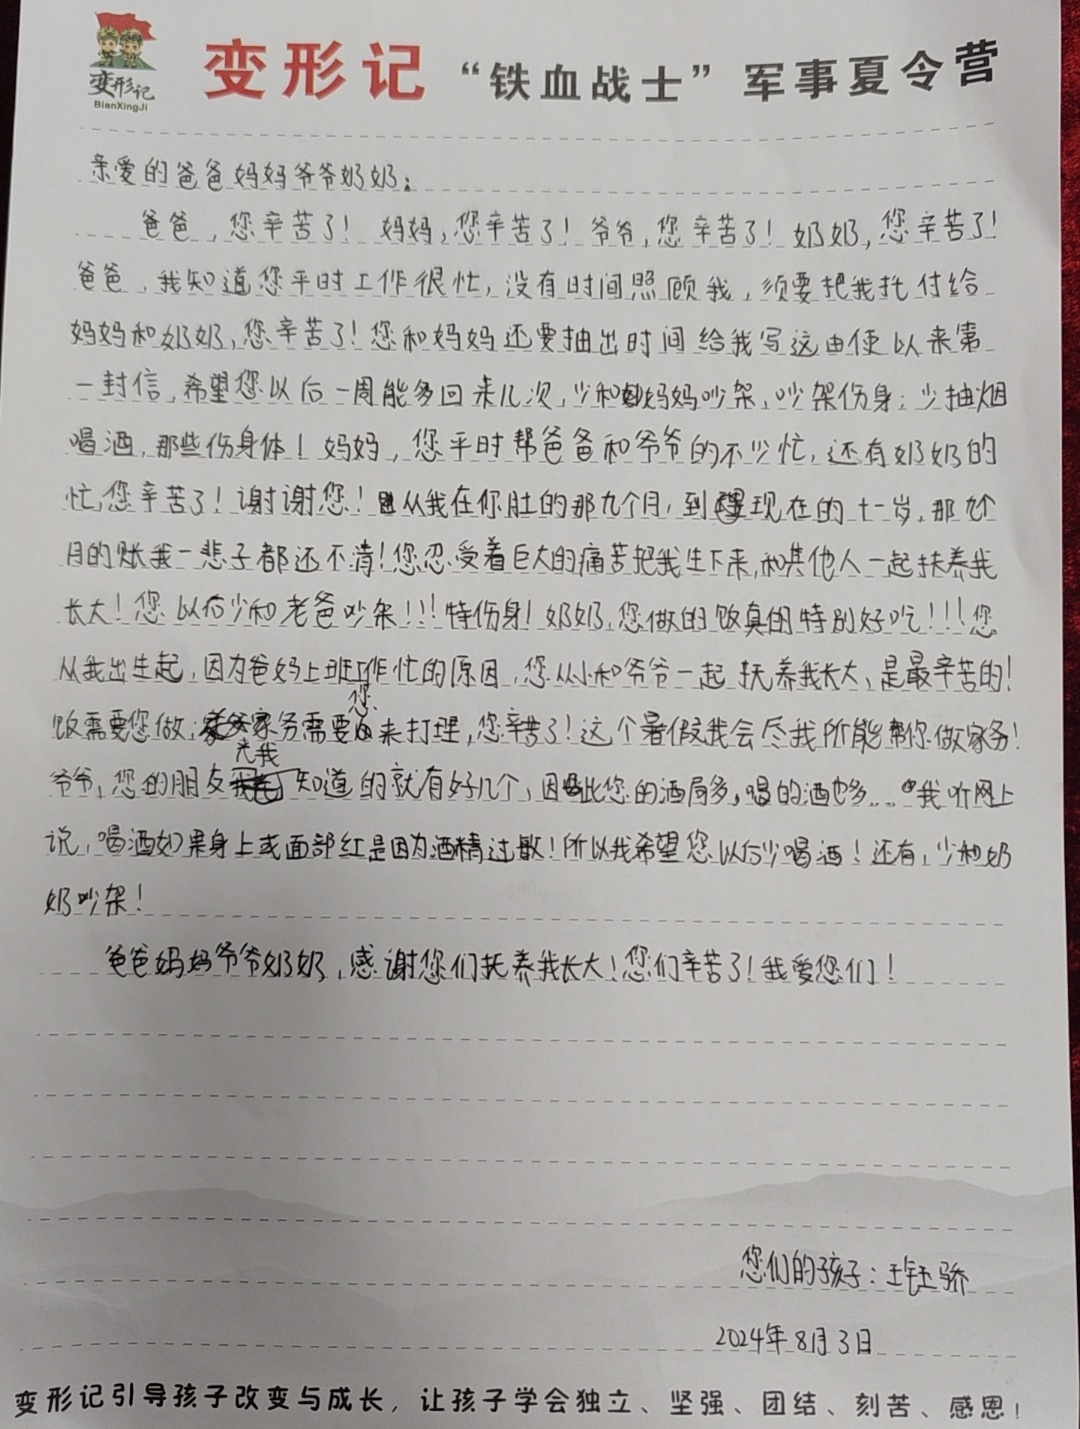 变形记
BianXingJi
变形记 “铁血战士” 军事夏令营
亲爱的爸爸妈妈爷爷奶奶：
爸爸，您辛苦了！妈妈，您辛苦了！爷爷，您辛苦了！奶奶，您辛苦了！
爸爸，我知道您平时工作很忙，没有时间照顾我，须要把我托付给
妈妈和奶奶，您辛苦了！您和妈妈还要抽出时间给我写这由使以来第
一封信，希望您以后一周能多回来几次，少和妈妈吵架，吵架伤身；少抽烟
喝酒，那些伤身体！妈妈，您平时帮爸爸和爷爷的不少忙，还有奶奶的
忙，您辛苦了！谢谢您！从我在你肚的那九个月，到现在的十一岁，那九个
月的账我一悲子都还不清！您忍受着巨大的痛苦把我生下来，和其他人一起扶养我
长大！您以后少和老爸吵架！！！特伤身！奶奶，您做的饭真的特别好吃！！！您
从我出生起，因为爸妈上班工作忙的原因，您从小和爷爷一起抚养我长大，是最辛苦的！
饭需要您做；家务需要您来打理，您辛苦了！这个暑假我会尽我所能帮你做家务！
爷爷，您的朋友光我知道的就有好几个，因此您的酒局多，喝的酒也多……我听网上
说，喝酒如果身上或面部红是因为酒精过敏！所以我希望您以后少喝酒！还有，少和奶
奶吵架！
爸爸妈妈爷爷奶奶，感谢您们抚养我长大！您们辛苦了！我爱您们！
您们的孩子：王钰骄
2024年8月3日
变形记引导孩子改变与成长，让孩子学会独立、坚强、团结、刻苦、感恩！